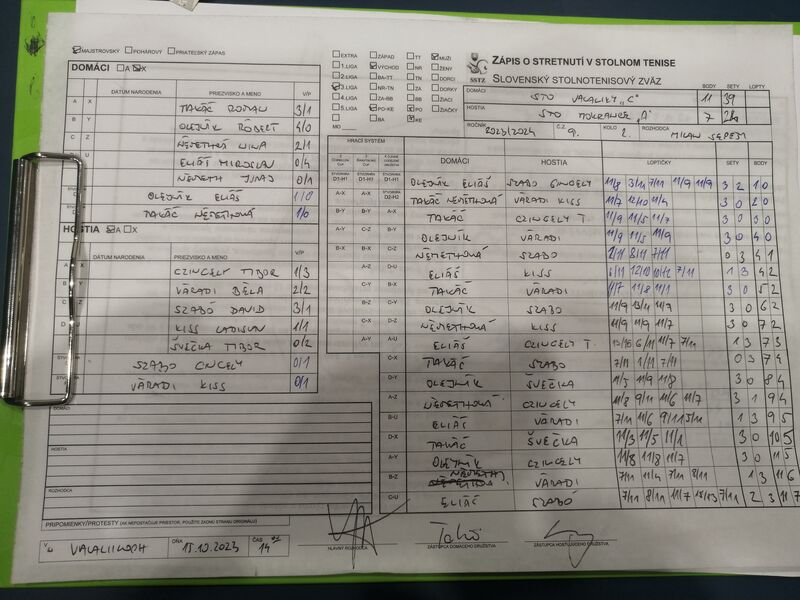 MAJSTROVSKÝ POHÁROVÝ PRIATEĽSKÝ ZÁPAS
DOMÁCI A X
DÁTUM NARODENIA PRIEZVISKO A MENO V/P
A X TAKÁČ ROMAN 3/1
B Y OLEJNÍK RÓBERT 4/0
C Z NÉMETHOVÁ NINA 2/1
D U ELIÁŠ MIROSLAV 0/4
NÉMETH JURAJ 0/1
OLEJNÍK ELIÁŠ 1/0
TAKÁČ NÉMETHOVÁ 1/0
HOSTIA A X
DÁTUM NARODENIA PRIEZVISKO A MENO V/P
CZINGELY TIBOR 1/3
VÁRADI BÉLA 2/2
SZABÓ DAVID 3/1
KISS LADISLAV 1/1
ŠVEČKA TIBOR 0/2
SZABO CINGELY 0/1
VÁRADI KISS 0/1
DOMÁCI
HOSTIA
ROZHODCA
PRIPOMIENKY/PROTESTY (AK NEPOSTAČUJE PRIESTOR, POUŽITE ZADNÚ STRANU ORIGINÁLU)
V VALALIKOCH DŇA 15.10.2023 ČAS 14
EXTRA ZÁPAD TT MUŽI
1.LIGA VÝCHOD NR ŽENY
2.LIGA BA-TT TN DORCI
3.LIGA NR-TN ZA DORKY
4.LIGA ZA-BB BB ŽIACI
5.LIGA PO-KE PO ŽIAČKY
MO BA KE
SSTZ
ZÁPIS O STRETNUTÍ V STOLNOM TENISE
SLOVENSKÝ STOLNOTENISOVÝ ZVÄZ
BODY SETY LOPTY
DOMÁCI STO VALALIKY "C" 11 39
HOSTIA STO MOKRANCE "A" 7 28
ROČNÍK 2023/2024 ČZ 9. KOLO 2. ROZHODCA MILAN SEPEŠI
HRACÍ SYSTÉM
DOMÁCI HOSTIA LOPTIČKY SETY BODY
D1-H1 D1-H1 D1-H1 OLEJNÍK ELIÁŠ SZABO CINGELY 11/8 3/11 7/11 11/9 11/9 3 2 1 0
A-X A-X D2-H2 TAKÁČ NÉMETHOVÁ VÁRADI KISS 11/7 12/10 11/4 3 0 2 0
B-Y B-Y A-X TAKÁČ CZINGELY T. 11/9 11/5 11/7 3 0 3 0
A-Y C-Z B-Y OLEJNÍK VÁRADI 11/9 11/5 11/9 3 0 4 0
B-X B-X C-Z NÉMETHOVÁ SZABO 2/11 8/11 7/11 0 3 4 1
A-Z D-U ELIÁŠ KISS 6/11 12/10 10/12 7/11 1 3 4 2
C-Y A-Y TAKÁČ VÁRADI 11/7 11/8 11/1 3 0 5 2
B-Z OLEJNÍK SZABO 11/9 13/11 11/9 3 0 6 2
C-X NÉMETHOVÁ KISS 11/9 11/9 11/7 3 0 7 2
A-Y ELIÁŠ CZINGELY T. 6/11 11/7 7/11 1 3 7 3
C-X TAKÁČ SZABO 7/11 1/11 7/11 0 3 7 4
D-Y OLEJNÍK ŠVEČKA 11/5 11/9 11/8 3 0 8 4
A-Z NÉMETHOVÁ CZINGELY 11/8 9/11 11/6 11/7 3 1 9 4
B-U ELIÁŠ VÁRADI 7/11 11/6 9/11 5/11 1 3 9 5
D-X TAKÁČ ŠVEČKA 11/3 11/5 11/1 3 0 10 5
A-Y OLEJNÍK CZINGELY 11/8 11/8 11/7 3 0 11 5
B-Z NÉMETH J. VÁRADI 7/11 11/4 7/11 8/11 1 3 11 6
C-U ELIÁŠ SZABÓ 7/11 8/11 11/7 15/13 7/11 2 3 11 7
HLAVNÝ ROZHODCA ZÁSTUPCA DOMÁCEHO DRUŽSTVA ZÁSTUPCA HOSŤUJÚCEHO DRUŽSTVA